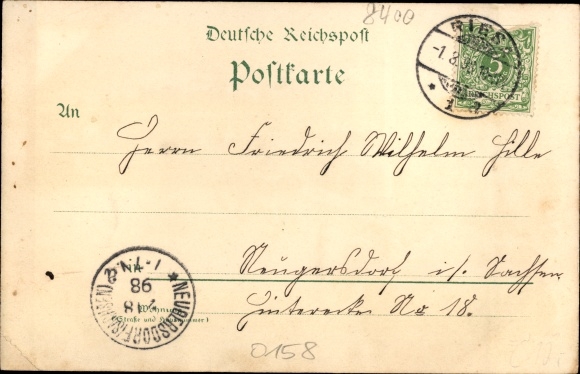 8400
Deutsche Reichspost
Postkarte
RIESA
-1.8.98
5
REICHSPOST
An
Herrn Friedrich Wilhelm Hille
Neugersdorf i/. Sachsen
Hinterecke No 18.
Wohnung
(Straße und Hausnummer)
NEUGERSDORF (SACHSEN)
98
0158